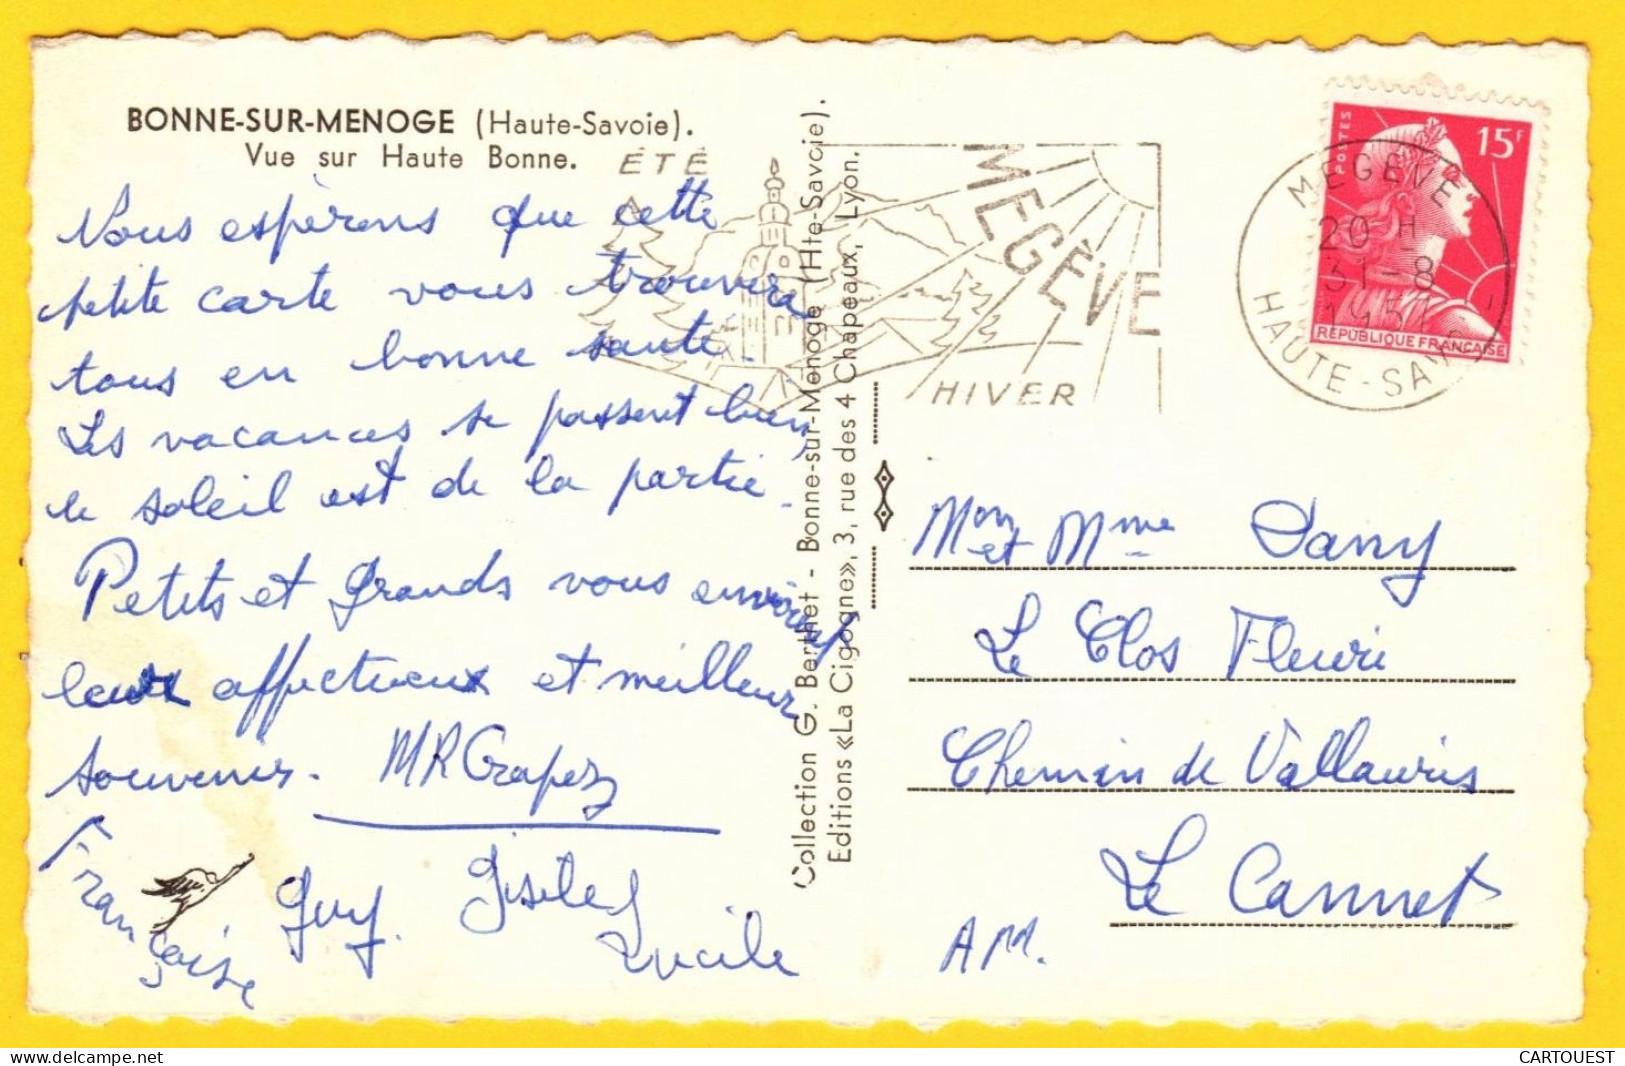 BONNE-SUR-MENOGE (Haute-Savoie).
Vue sur Haute Bonne.
Nous espérons que cette
petite carte vous trouvera
tous en bonne santé.
Les vacances se passent bien,
le soleil est de la partie.
Petits et grands vous envoient
leurs affectueux et meilleurs
souvenirs. MR Grapez
Française
Guy.
Gisèle
Lucile
Collection G. Berthet - Bonne-sur-Menoge (Hte-Savoie).
Editions «La Cigogne», 3, rue des 4 Chapeaux, Lyon.
ÉTÉ
MEGÈVE
HIVER
POSTES
15F
REPUBLIQUE FRANÇAISE
MEGÈVE
20 H
31-8
HAUTE-SAVOIE
Mon et Mme Dany
Le Clos Fleuri
Chemin de Vallauris
Le Cannet
A M.
www.delcampe.net
CARTOUEST